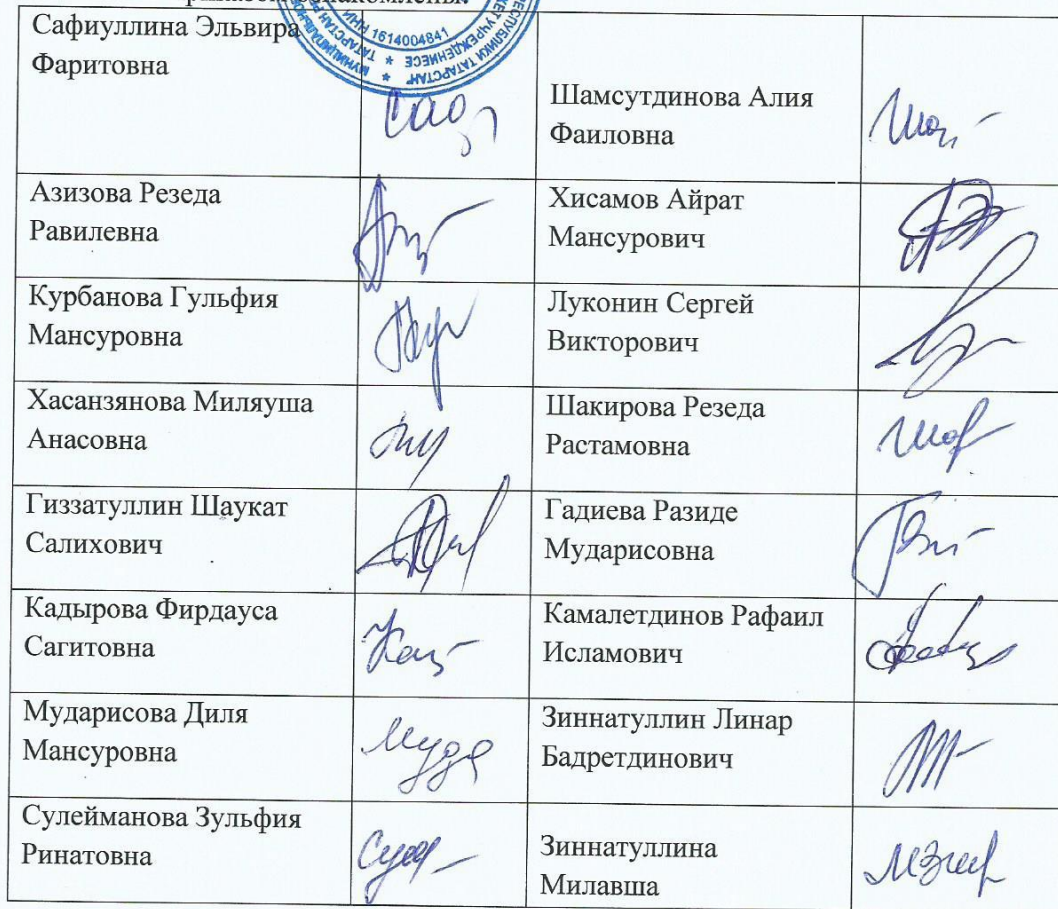 ознакомлены.
ИНН 1614004841
Сафиуллина Эльвира
Фаритовна
Шамсутдинова Алия
Фаиловна
Азизова Резеда
Равилевна
Хисамов Айрат
Мансурович
Курбанова Гульфия
Мансуровна
Луконин Сергей
Викторович
Хасанзянова Миляуша
Анасовна
Шакирова Резеда
Растамовна
Гиззатуллин Шаукат
Салихович
Гадиева Разиде
Мударисовна
Кадырова Фирдауса
Сагитовна
Камалетдинов Рафаил
Исламович
Мударисова Диля
Мансуровна
Зиннатуллин Линар
Бадретдинович
Сулейманова Зульфия
Ринатовна
Зиннатуллина
Милавша